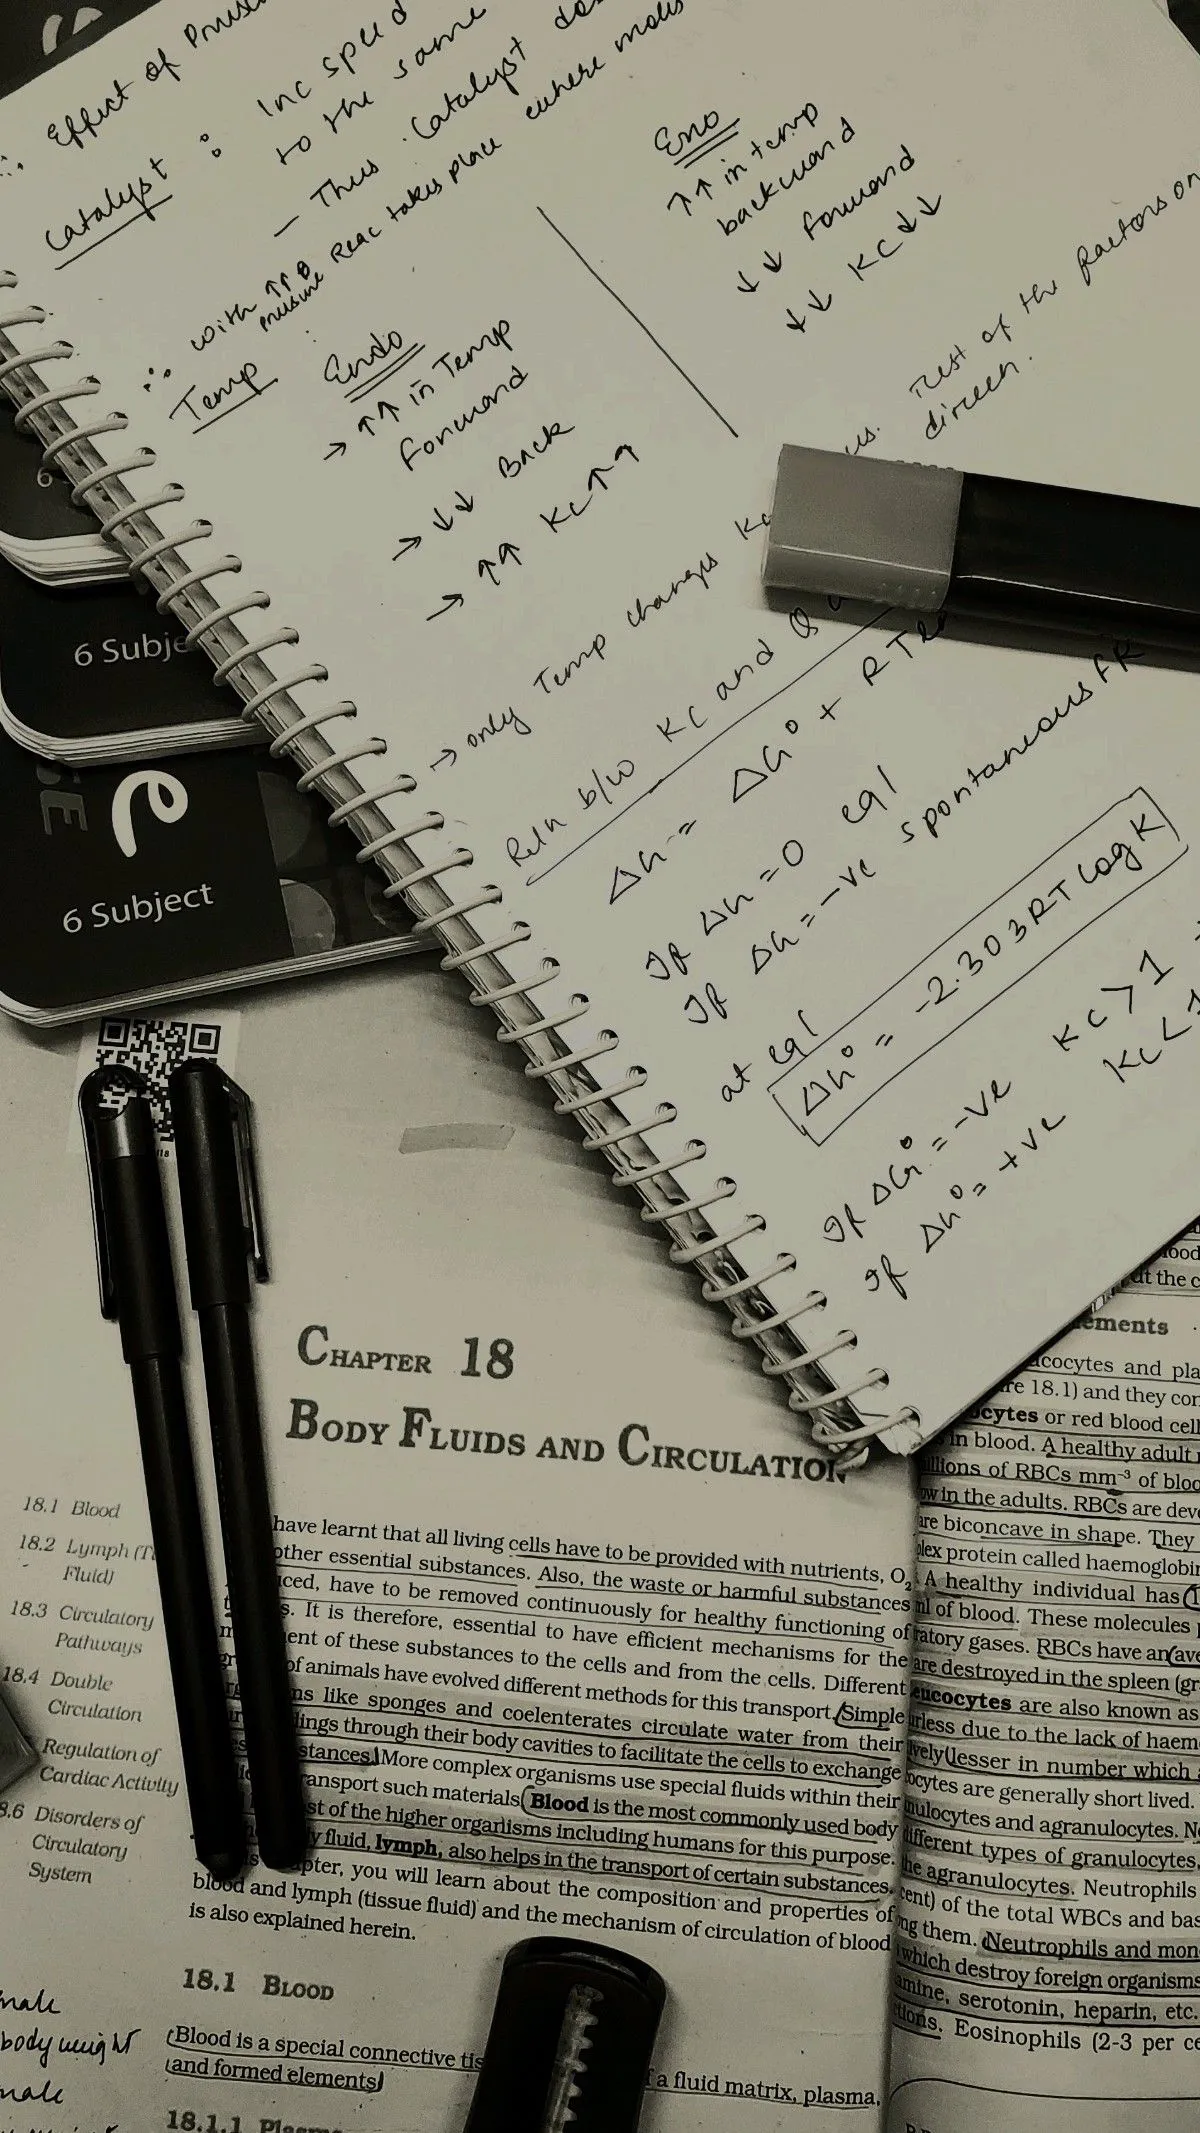 ∴ Effect of
Catalyst : Inc speed
to the same
– Thus Catalyst
∴ with ↑↑ pressure reac takes place where
Temp :
Endo
→ ↑↑ in Temp
forward
→ ↓↓ Back
→ ↑↑ Kc ↑↑
Exo
↑↑ in temp
backward
↓↓ forward
↓↓ Kc ↓↓
→ only Temp changes Kc
rest of the factors on
direcn.
Reln b/w Kc and Q
ΔG = ΔG° + RT
If ΔG = 0 eql
If ΔG = -ve spontaneous
at eql
ΔG° = -2.303RT log K
If ΔG° = -ve Kc > 1
If ΔG° = +ve Kc <
6
6 Subje
6 Subject
CHAPTER 18
BODY FLUIDS AND CIRCULATION
18.1 Blood
18.2 Lymph
Fluid)
18.3 Circulatory
Pathways
18.4 Double
Circulation
Regulation of
Cardiac Activity
Disorders of
Circulatory
System
have learnt that all living cells have to be provided with nutrients, O₂
other essential substances. Also, the waste or harmful substances
have to be removed continuously for healthy functioning of
It is therefore, essential to have efficient mechanisms for the
of these substances to the cells and from the cells. Different
of animals have evolved different methods for this transport. Simple
like sponges and coelenterates circulate water from their
through their body cavities to facilitate the cells to exchange
More complex organisms use special fluids within their
transport such materials. Blood is the most commonly used body
of the higher organisms including humans for this purpose.
fluid, lymph, also helps in the transport of certain substances.
you will learn about the composition and properties of
blood and lymph (tissue fluid) and the mechanism of circulation of blood
is also explained herein.
18.1 BLOOD
Blood is a special connective
a fluid matrix, plasma,
and formed elements
18.1.1
body weight
the c
and
18.1) and they
or red blood
in blood. A healthy adult
of RBCs mm⁻³ of
in the adults. RBCs are
are biconcave in shape. They
protein called
A healthy individual has
of blood. These molecules
gases. RBCs have an
are destroyed in the spleen
are also known as
due to the lack of
lesser in number which
are generally short lived.
and agranulocytes.
different types of granulocytes,
agranulocytes. Neutrophils
of the total WBCs and
them. Neutrophils and
which destroy foreign organisms
serotonin, heparin, etc.
Eosinophils (2-3 per